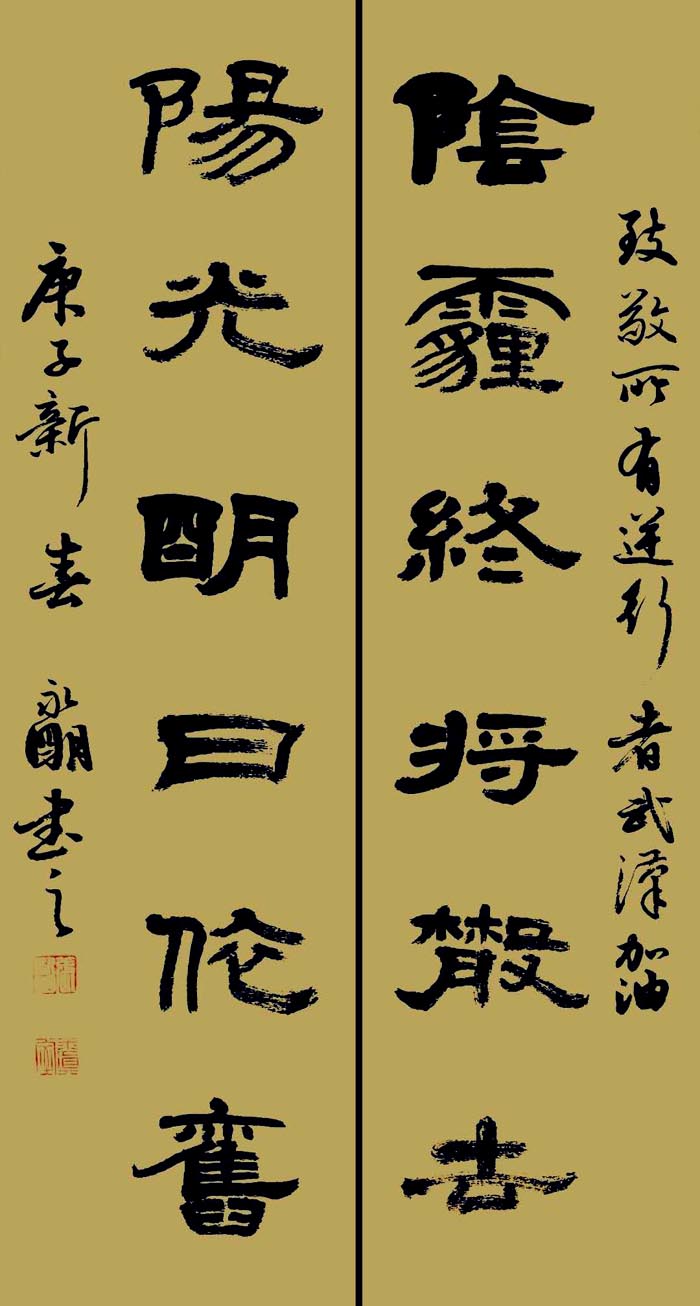 致敬所有逆行者武漢加油
陰霾終将散去
陽光明日依舊
庚子新春 永明書之